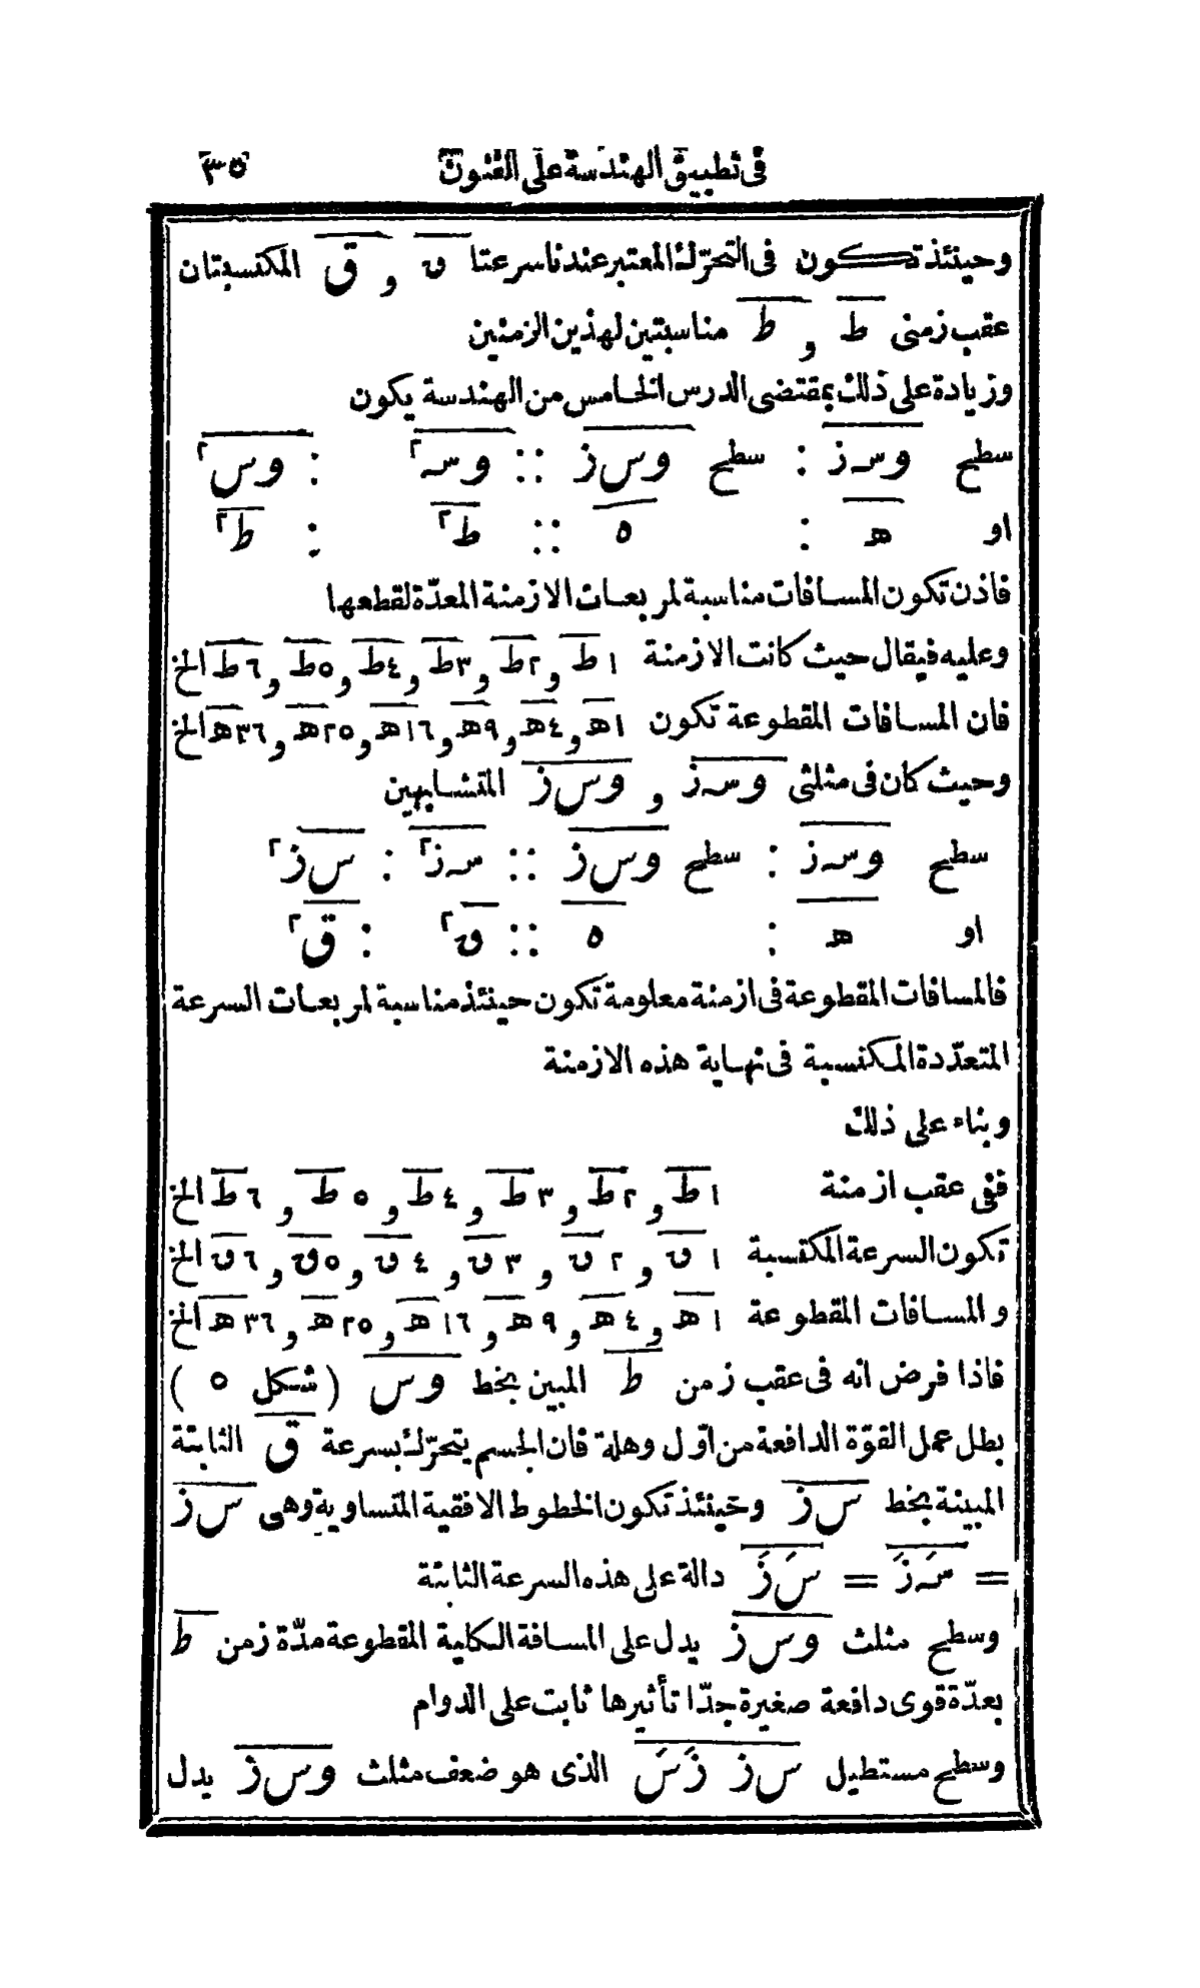 فى تطبيق الهندسة على الفنون ٣٥
وحينئذ تكون فى التحرّك المعتبر عندنا سرعتا ق و ق المكتسبتان
عقب زمنى ط و ط مناسبتين لهذين الزمنين
وزيادة على ذلك بمقتضى الدرس الخامس من الهندسة يكون
سطح وسز : سطح وسز :: وس٢ : وس٢
او ھ : ه :: ط٢ : ط٢
فاذن تكون المسافات مناسبة لمربعات الازمنة المعدّة لقطعها
وعليه فيقال حيث كانت الازمنة ١ط و٢ط و٣ط و٤ط و٥ط و٦ط الخ
فان المسافات المقطوعة تكون ١ھ و٤ھ و٩ھ و١٦ھ و٢٥ھ و٣٦ھ الخ
وحيث كان فى مثلثى وسز و وسز المتشابهين
سطح وسز : سطح وسز :: سز٢ : سز٢
او ھ : ه :: ق٢ : ق٢
فالمسافات المقطوعة فى ازمنة معلومة تكون حينئذ مناسبة لمربعات السرعة
المتعدّدة المكتسبة فى نهاية هذه الازمنة
وبناء على ذلك
ففى عقب ازمنة ١ط و ٢ط و ٣ط و ٤ط و ٥ط و ٦ط الخ
تكون السرعة المكتسبة ١ق و ٢ق و ٣ق و ٤ق و ٥ق و ٦ق الخ
والمسافات المقطوعة ١ھ و ٤ھ و ٩ھ و ١٦ھ و ٢٥ھ و ٣٦ھ الخ
فاذا فرض انه فى عقب زمن ط المبين بخط وس (شكل ٥)
بطل عمل القوّة الدافعة من اوّل وهلة فان الجسم يتحرّك بسرعة ق الثابتة
المبينة بخط سز وحينئذ تكون الخطوط الافقية المتساوية وهى سز
= سَزَ = سَزَ دالة على هذه السرعة الثابتة
وسطح مثلث وسز يدل على المسافة الكلية المقطوعة مدّة زمن ط
بعدّة قوى دافعة صغيرة جدّا تأثيرها ثابت على الدوام
وسطح مستطيل سز زَسَ الذى هو ضعف مثلث وسز يدل